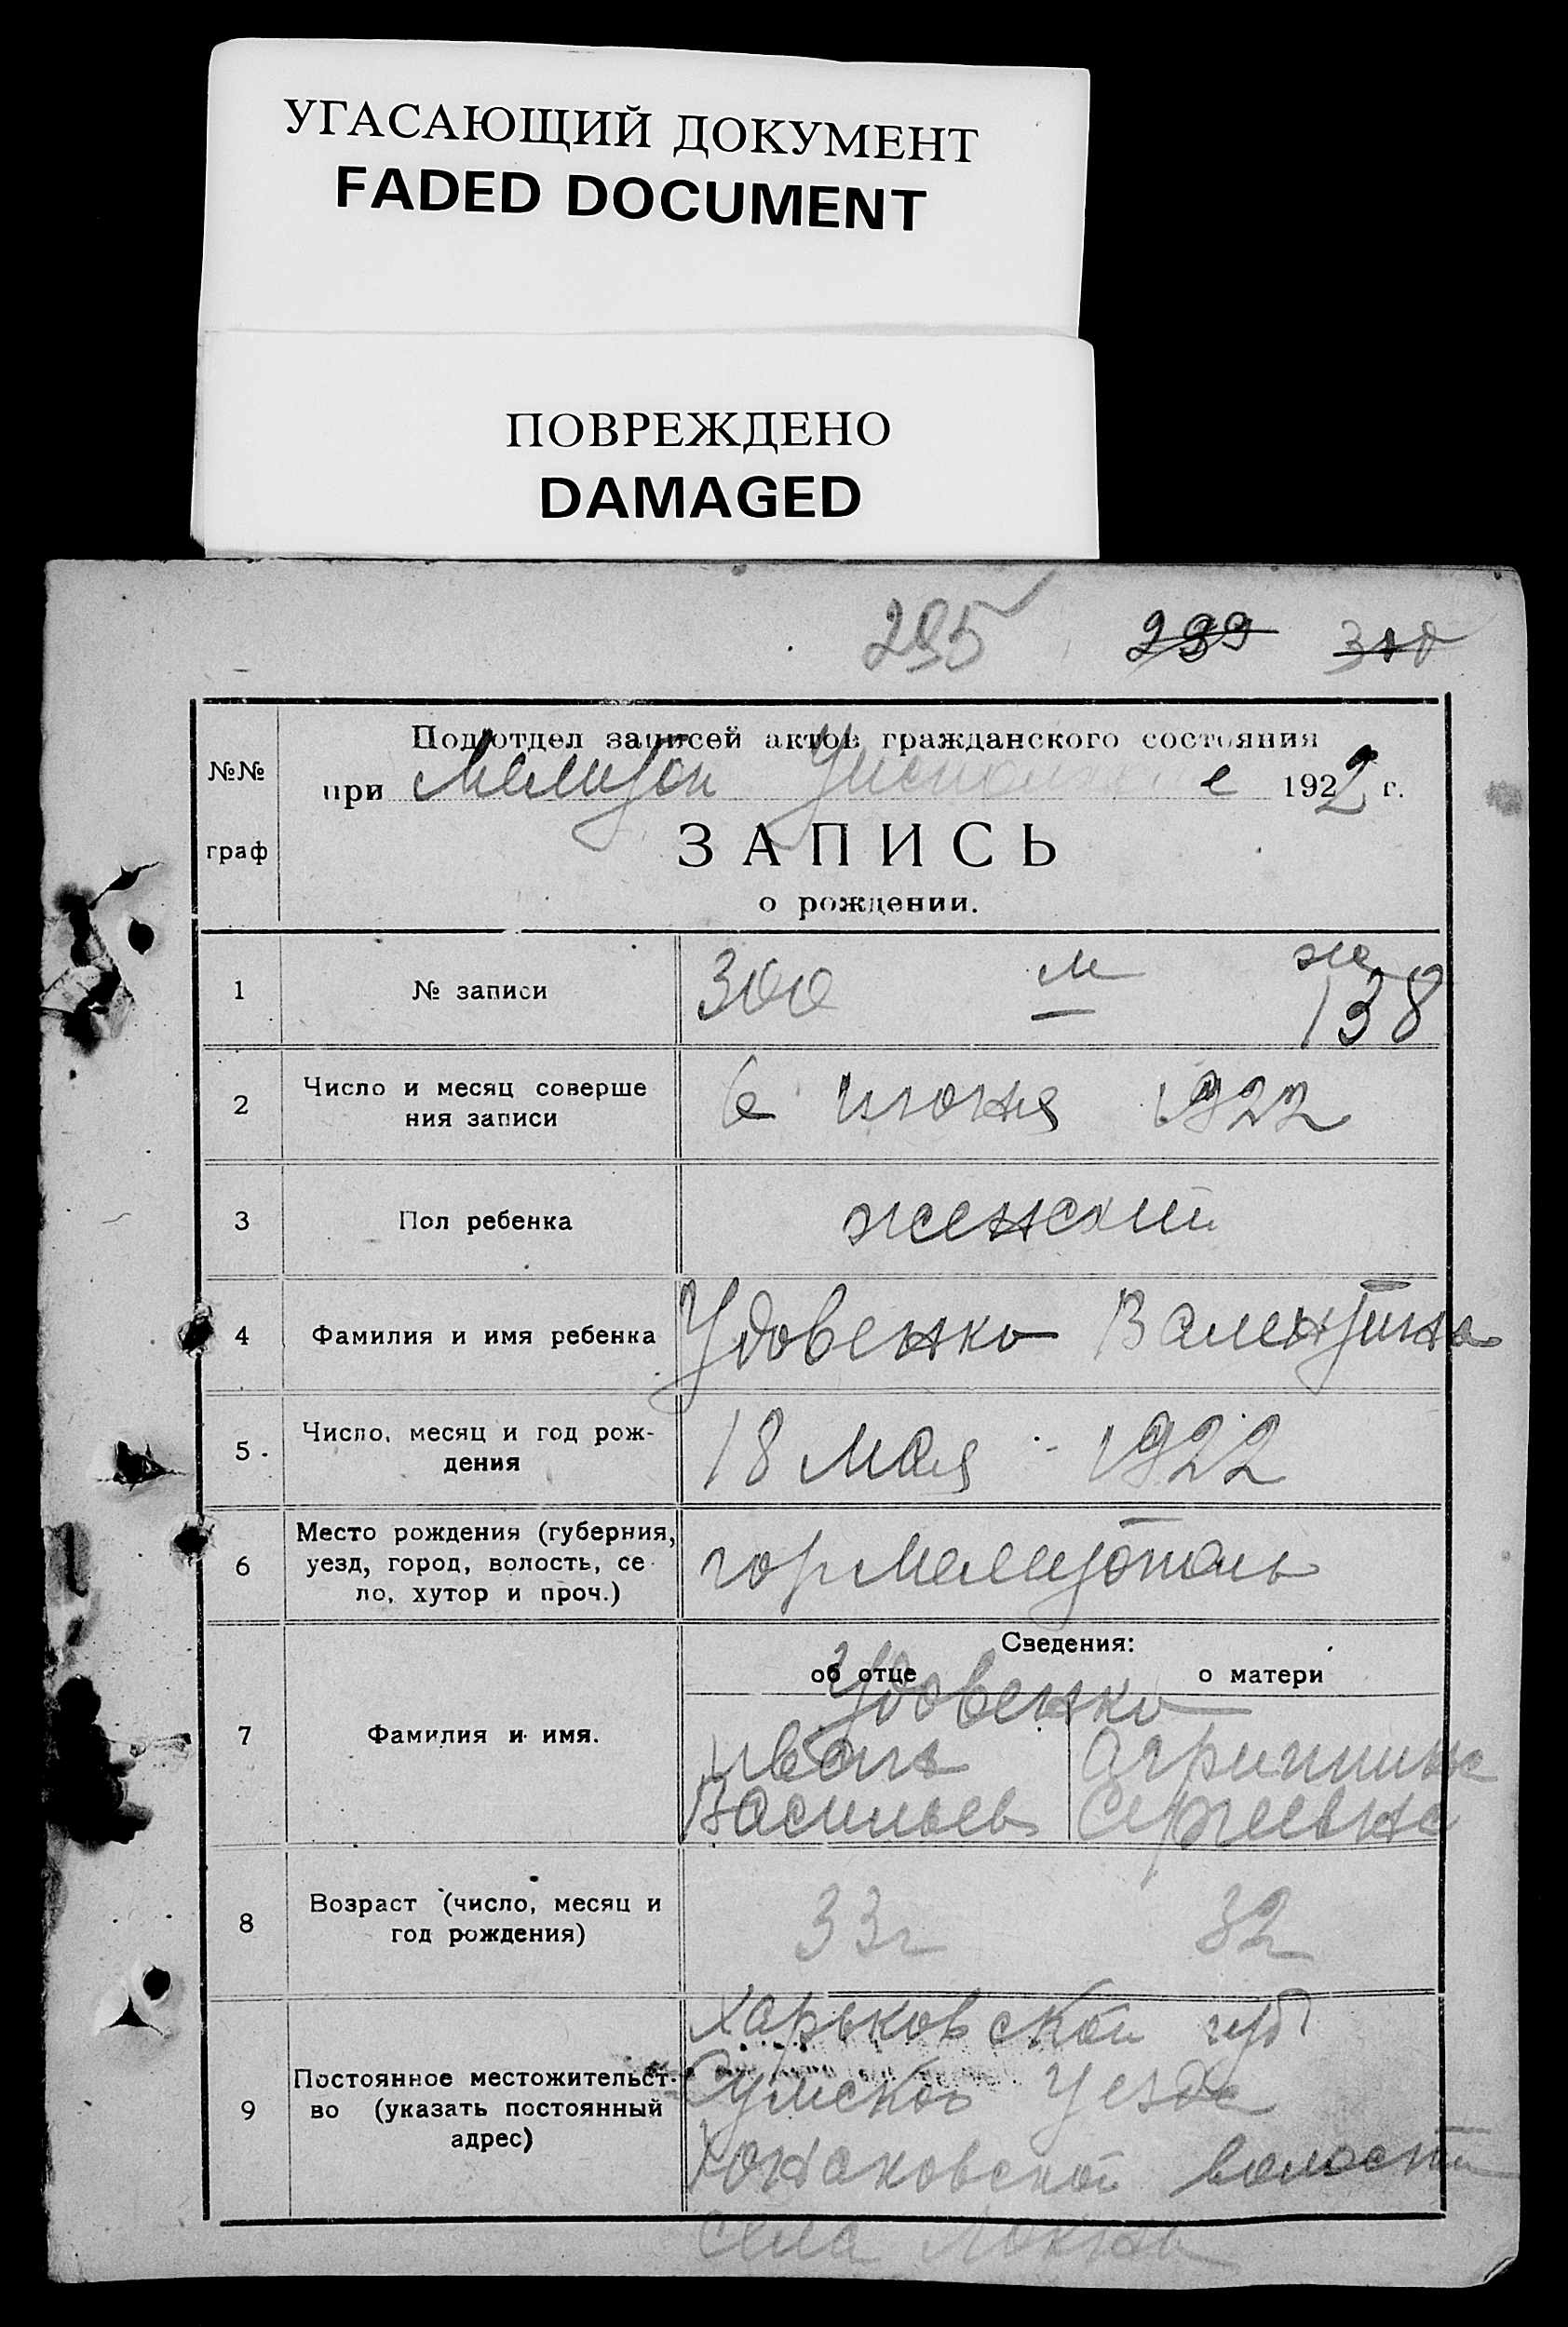 УГАСАЮЩИЙ ДОКУМЕНТ
FADED DOCUMENT
ПОВРЕЖДЕНО
DAMAGED
295 299 300
№№ граф
Подотдел записей актов гражданского состояния
при Мелитоп 1922 г.
ЗАПИСЬ
о рождении.
1 № записи 300 м — ж 138
2 Число и месяц соверше
ния записи
6 июня 1922
3 Пол ребенка женский
4 Фамилия и имя ребенка Удовенко Валентина
5 Число, месяц и год рож-
дения
18 мая 1922
6 Место рождения (губерния,
уезд, город, волость, се
ло, хутор и проч.)
гор Мелитополь
Сведения:
об отце о матери
7 Фамилия и имя.
Удовенко
Иван Агрипина
Васильев Сергеевна
8 Возраст (число, месяц и
год рождения)
33г 32
9 Постоянное местожительст-
во (указать постоянный
адрес)
Харьковской губ
Сумского Уезда
волости
села Локня